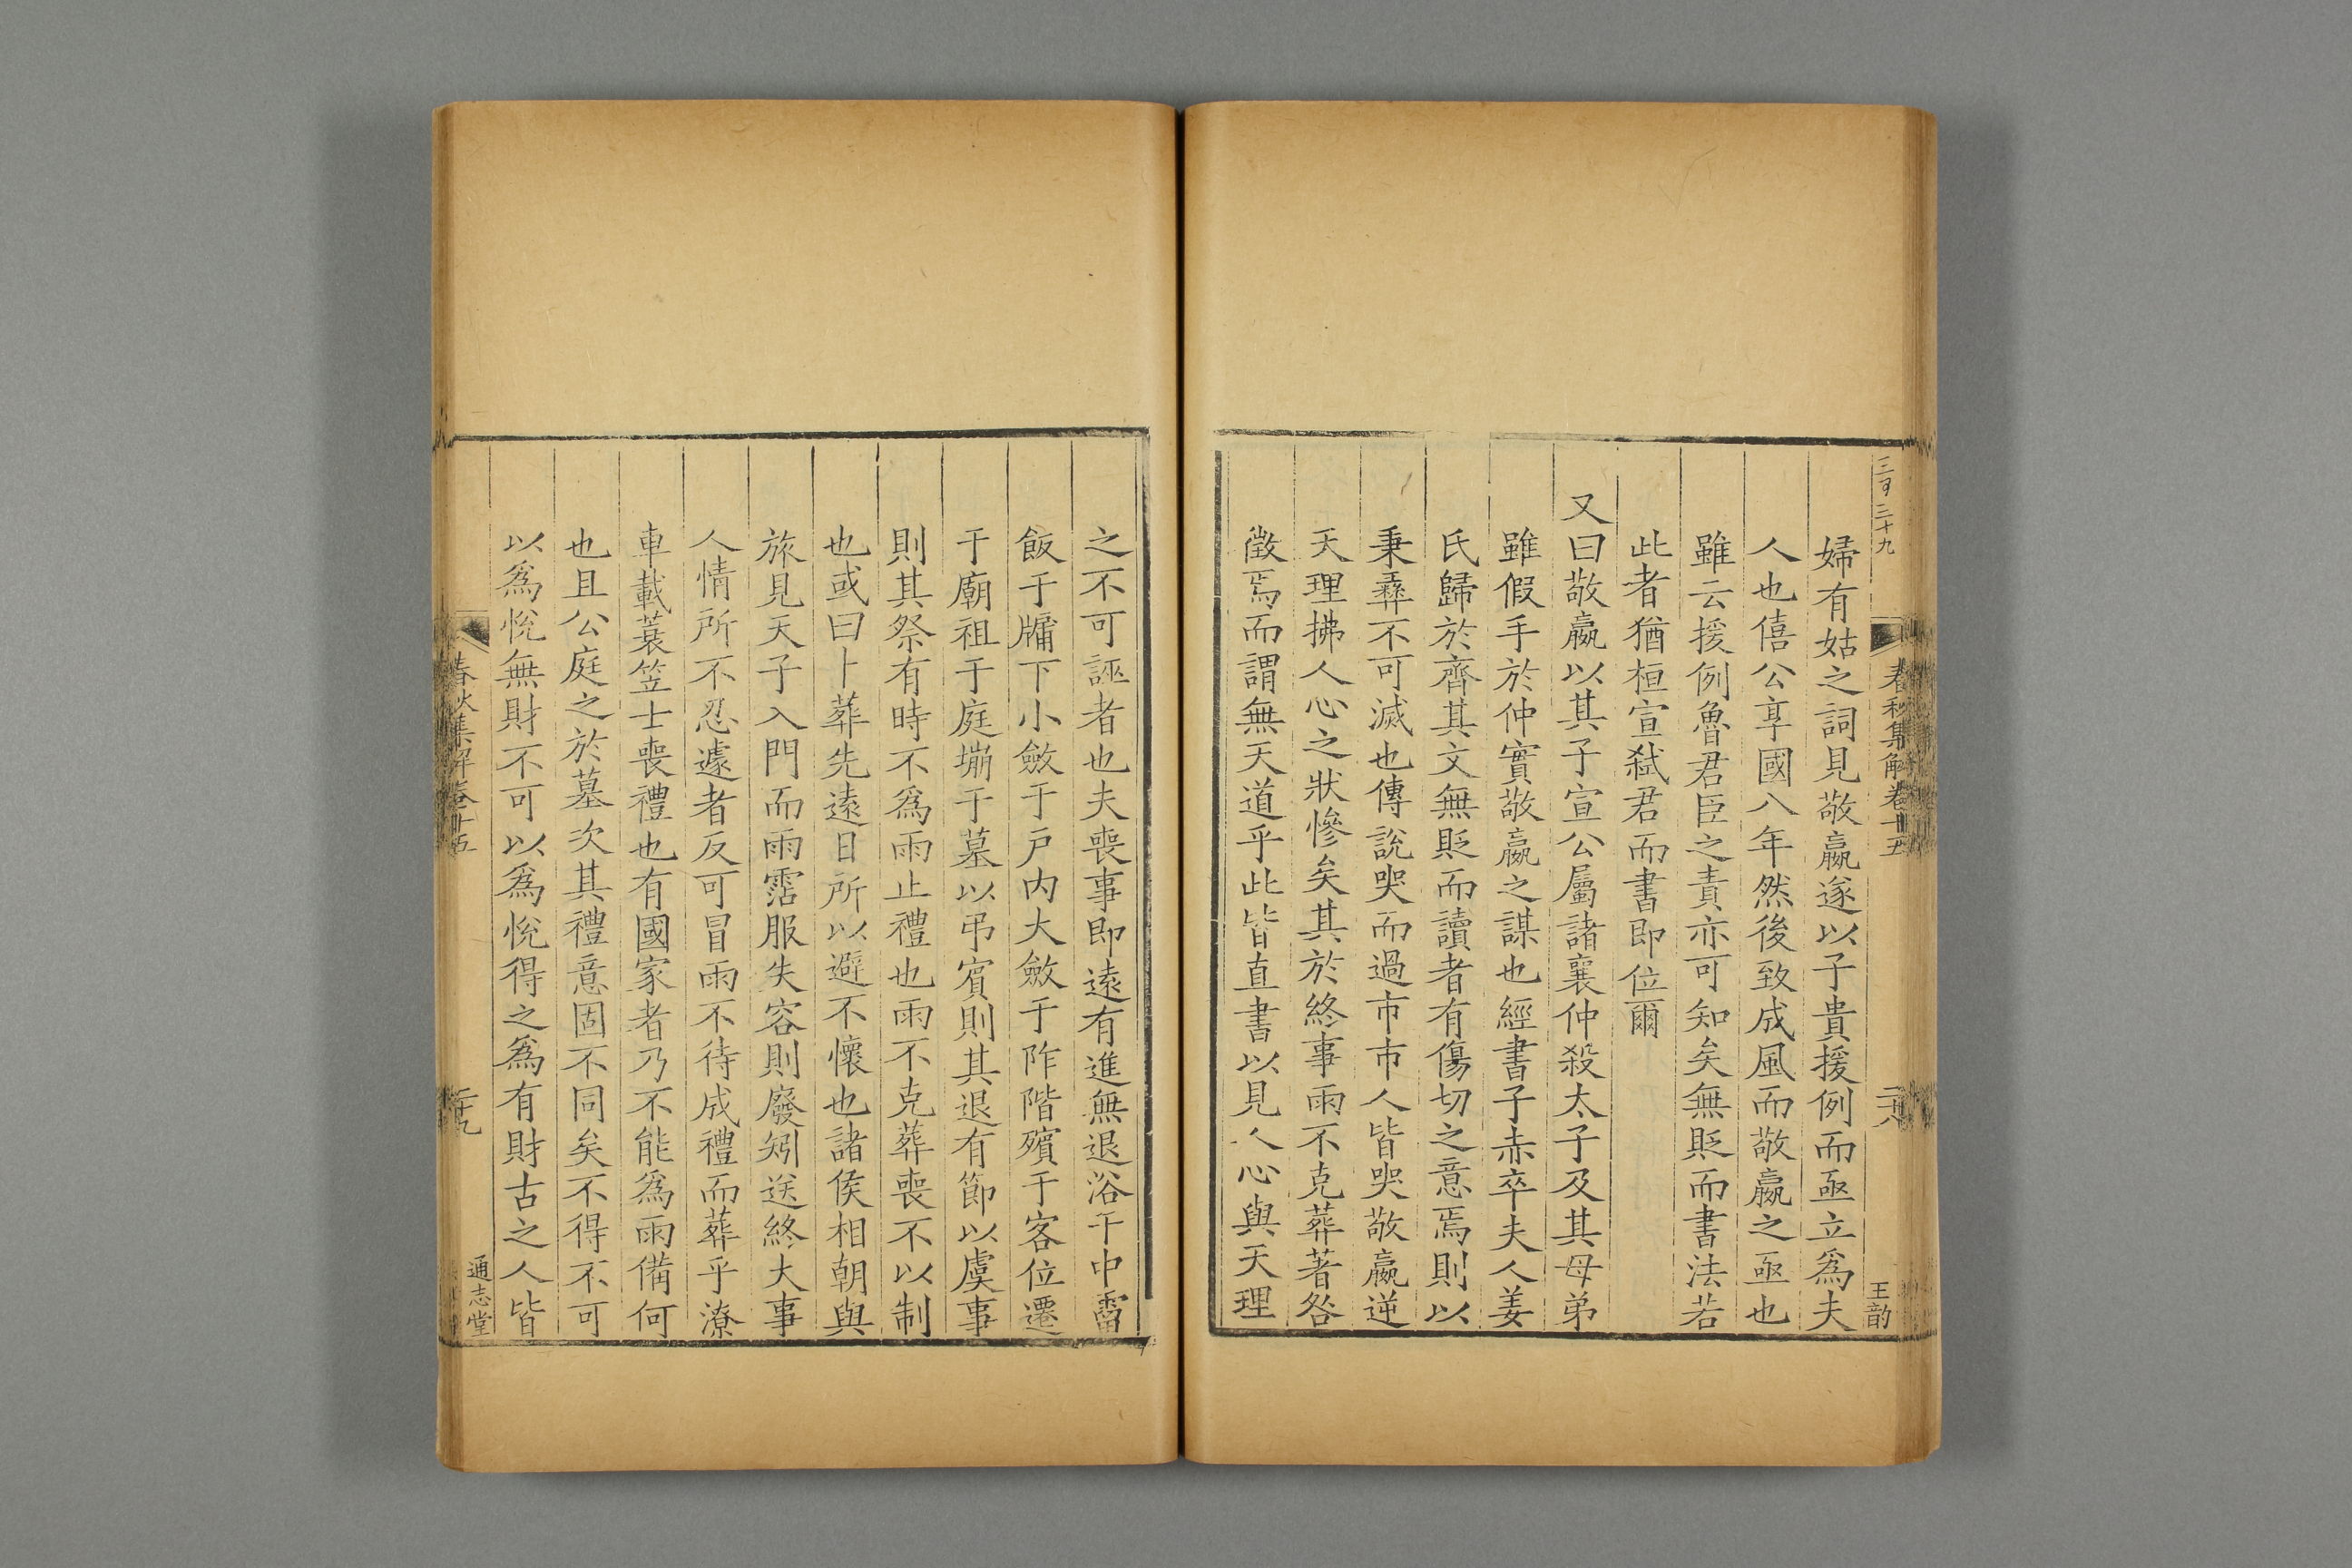 三百三十九
春秋集解卷十五
二十八
王韵
婦有姑之詞見敬嬴遂以子貴援例而亟立爲夫
人也僖公享國八年然後致成風而敬嬴之亟也
雖云援例魯君臣之責亦可知矣無貶而書法若
此者猶桓宣弑君而書即位爾
又曰敬嬴以其子宣公屬諸襄仲殺太子及其母弟
雖假手於仲實敬嬴之謀也經書子赤卒夫人姜
氏歸於齊其文無貶而讀者有傷切之意焉則以
秉彝不可滅也傳說哭而過市市人皆哭敬嬴逆
天理拂人心之狀慘矣其於終事雨不克葬著咎
徵焉而謂無天道乎此皆直書以見人心與天理
之不可誣者也夫喪事即遠有進無退浴于中霤
飯于牖下小斂于戶內大斂于阼階殯于客位遷
于廟祖于庭塴于墓以弔賓則其退有節以虞事
則其祭有時不爲雨止禮也雨不克葬喪不以制
也或曰卜葬先遠日所以避不懷也諸侯相朝與
旅見天子入門而雨霑服失容則廢矧送終大事
人情所不忍遽者反可冒雨不待成禮而葬乎潦
車載蓑笠士喪禮也有國家者乃不能爲雨備何
也且公庭之於墓次其禮意固不同矣不得不可
以爲悅無財不可以爲悅得之爲有財古之人皆
春秋集解卷十五
二十九
通志堂